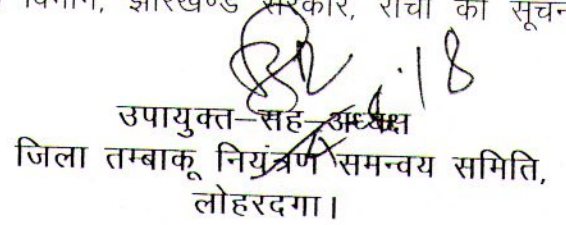 विभाग, झारखण्ड सरकार, राँची को सूचन
उपायुक्त–सह–अध्यक्ष
जिला तम्बाकू नियंत्रण समन्वय समिति,
लोहरदगा।